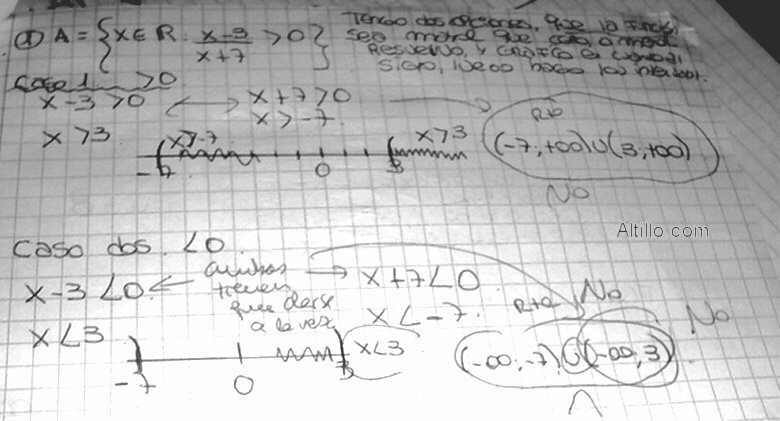 d) A = {x ∈ R . x-3/x+7 > 0}
Tengo dos opciones, que la
sea mayor que cero, o
Resuelvo, y grafico
signo, luego hago los
Caso 1 >0
x-3>0 ⟷ x+7>0
x>3 x>-7
x>-7 x>3
-7 0 3
Rta
(-7;+∞)∪(3;+∞)
No
Altillo com
Caso dos. <0.
x-3<0 ← ambas → x+7<0
tienen
que darse
a la vez
x<3 x<-7.
x<3
-7 0 3
Rta No
(-∞;-7)∪(-∞;3)
No
∩